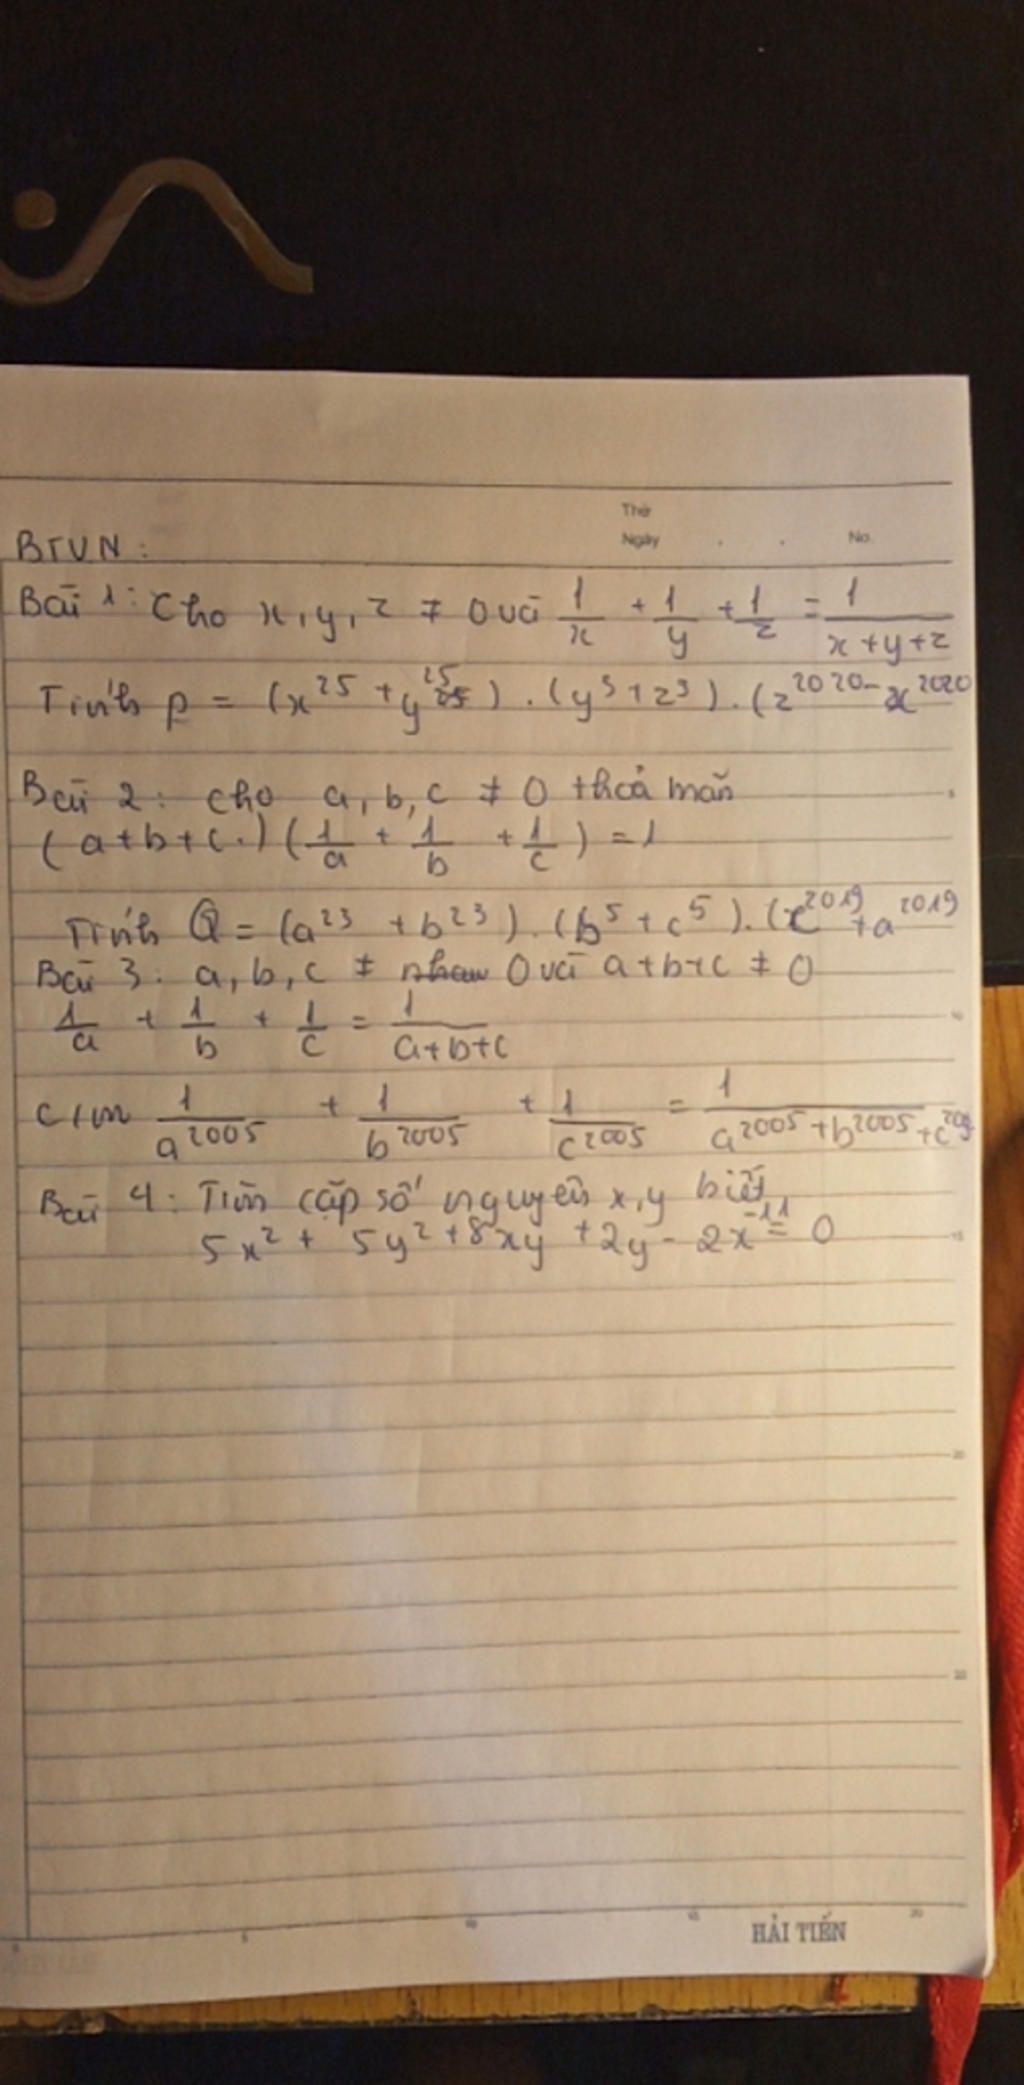 Thứ
Ngày . . No.
BTVN:
Bài 1: Cho x, y, z ≠ 0 và 1/x + 1/y + 1/z = 1/(x+y+z)
Tính P = (x^25 + y^25) . (y^3 + z^3) . (z^2020 - x^2020
Bài 2: Cho a, b, c ≠ 0 thoả mãn
(a+b+c.) (1/a + 1/b + 1/c) = 1
Tính Q = (a^23 + b^23) . (b^5 + c^5) . (c^2019 + a^2019
Bài 3: a, b, c ≠ 0 và a+b+c ≠ 0
1/a + 1/b + 1/c = 1/(a+b+c)
C/m 1/a^2005 + 1/b^2005 + 1/c^2005 = 1/(a^2005 + b^2005 + c^2005
Bài 4: Tìm cặp số nguyên x, y biết
5x^2 + 5y^2 + 8xy + 2y - 2x - 11 = 0
HẢI TIẾN